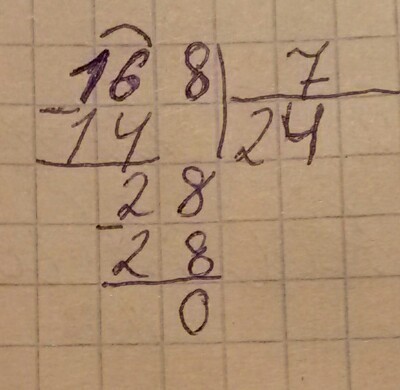 168 7
-14 24
28
-28
0